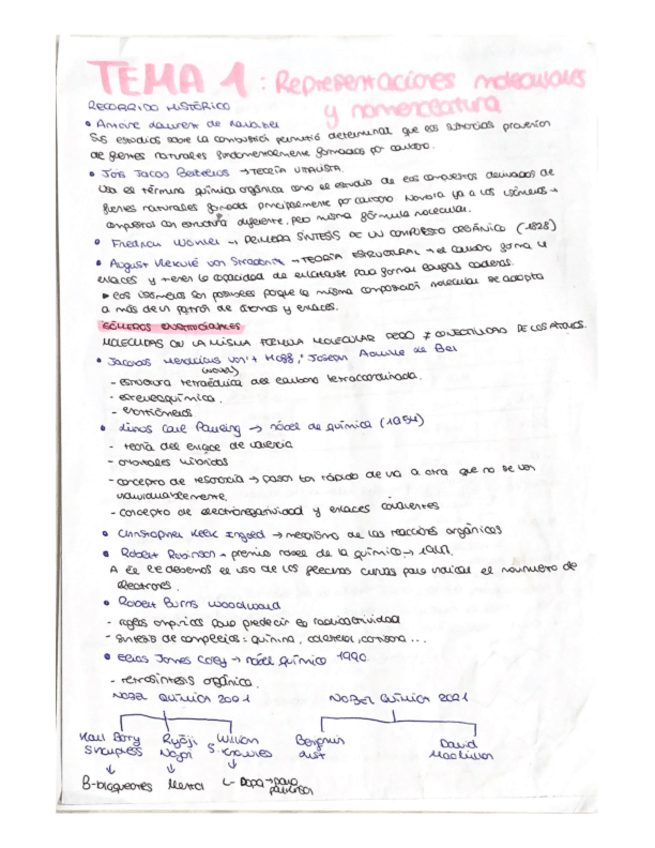 TEMA 1: Representaciones moleculares
y nomenclatura
RECORRIDO HISTÓRICO
• Antoine Laurent de Lavoisier
Sus estudios sobre la combustión permitió determinar que las sustancias provenían
de bienes naturales fundamentalmente formados por carbono.
• Jöns Jacob Berzelius → TEORÍA VITALISTA.
Usa el término química orgánica como el estudio de los compuestos derivados de
bienes naturales formados principalmente por carbono. Nombra ya a los isómeros →
compuestos con estructura diferente, pero misma fórmula molecular.
• Friedrich Wöhler → PRIMERA SÍNTESIS DE UN COMPUESTO ORGÁNICO (1828)
• August Kekulé von Stradonitz → TEORÍA ESTRUCTURAL → el carbono forma 4
enlaces y tienen la capacidad de enlazarse para formar largas cadenas.
▸ Los isómeros son posibles porque la misma composición molecular se adopta
a más de un patrón de átomos y enlaces.
ISÓMEROS
MOLÉCULAS CON LA MISMA FÓRMULA MOLECULAR PERO ≠ CONECTIVIDAD DE LOS ÁTOMOS.
• Jacobus Henricus Van't Hoff, Joseph Achille de Bel
- estructura tetraédrica del carbono tetracoordinado.
- estereoquímica.
- enantiómeros
• Linus Carl Pauling → nobel de química (1954)
- teoría del enlace de valencia
- orbitales híbridos
- concepto de resonancia → pasan tan rápido de una a otra que no se ven
individualmente.
- concepto de electronegatividad y enlaces covalentes
• Christopher Kelk Ingold → mecanismo de las reacciones orgánicas
• Robert Robinson → premio nobel de la química → 1947.
A él le debemos el uso de las flechas curvas para indicar el movimiento de
electrones.
• Robert Burns Woodward
- reglas empíricas para predecir la
- síntesis de complejos: quinina, colesterol, cortisona ...
• Elias James Corey → nobel química 1990.
- retrosíntesis orgánica.
NOBEL QUÍMICA 2001 NOBEL QUÍMICA 2021
Karl Barry Ryōji William Benjamin David
Sharpless Noyori S. Knowles List MacMillan
↓ ↓ ↓
B-bloqueantes Mentol L-Dopa → para
parkinson